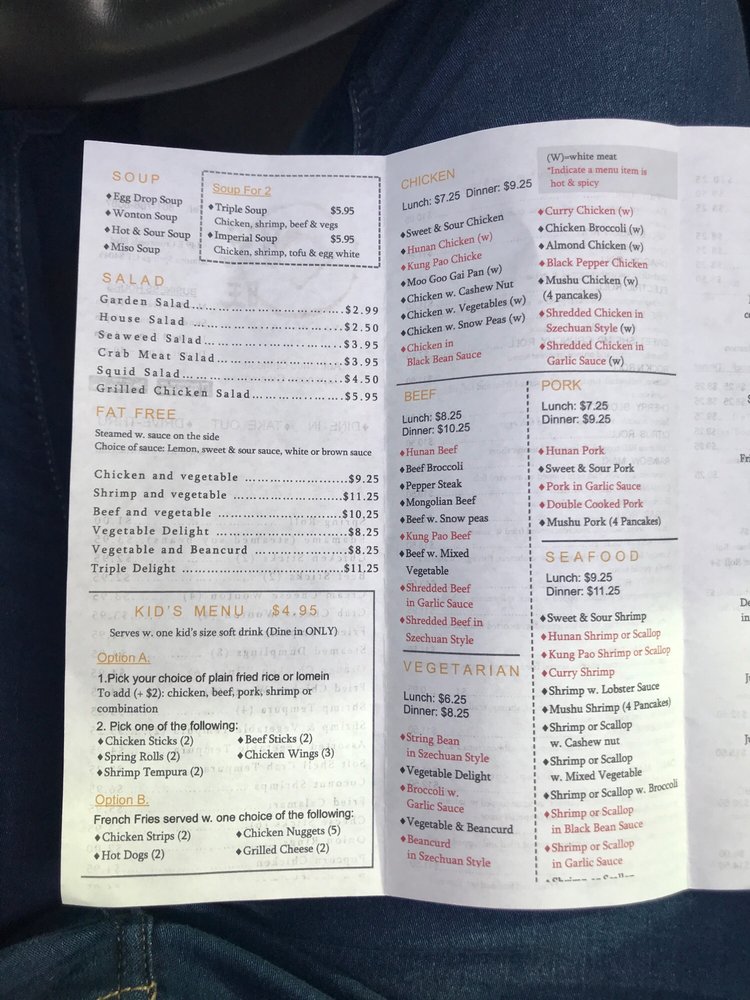 SOUP
♦Egg Drop Soup
♦Wonton Soup
♦Hot & Sour Soup
♦Miso Soup
Soup For 2
♦Triple Soup $5.95
Chicken, shrimp, beef & vegs
♦Imperial Soup $5.95
Chicken, shrimp, tofu & egg white
SALAD
Garden Salad..............................$2.99
House Salad ..............................$2.50
Seaweed Salad..............................$3.95
Crab Meat Salad..............................$3.95
Squid Salad..............................$4.50
Grilled Chicken Salad....................$5.95
FAT FREE
Steamed w. sauce on the side
Choice of sauce: Lemon, sweet & sour sauce, white or brown sauce
Chicken and vegetable ....................$9.25
Shrimp and vegetable ....................$11.25
Beef and vegetable ....................$10.25
Vegetable Delight ....................$8.25
Vegetable and Beancurd ....................$8.25
Triple Delight ....................$11.25
KID'S MENU $4.95
Serves w. one kid's size soft drink (Dine in ONLY)
Option A.
1.Pick your choice of plain fried rice or lomein
To add (+ $2): chicken, beef, pork, shrimp or
combination
2. Pick one of the following:
♦Chicken Sticks (2) ♦Beef Sticks (2)
♦Spring Rolls (2) ♦Chicken Wings (3)
♦Shrimp Tempura (2)
Option B.
French Fries served w. one choice of the following:
♦Chicken Strips (2) ♦Chicken Nuggets (5)
♦Hot Dogs (2) ♦Grilled Cheese (2)
CHICKEN
Lunch: $7.25 Dinner: $9.25
(W)=white meat
*Indicate a menu item is
hot & spicy
♦Sweet & Sour Chicken
♦Hunan Chicken (w)
♦Kung Pao Chicke
♦Moo Goo Gai Pan (w)
♦Chicken w. Cashew Nut
♦Chicken w. Vegetables (w)
♦Chicken w. Snow Peas (w)
♦Chicken in
Black Bean Sauce
♦Curry Chicken (w)
♦Chicken Broccoli (w)
♦Almond Chicken (w)
♦Black Pepper Chicken
♦Mushu Chicken (w)
(4 pancakes)
♦Shredded Chicken in
Szechuan Style (w)
♦Shredded Chicken in
Garlic Sauce (w)
BEEF
Lunch: $8.25
Dinner: $10.25
♦Hunan Beef
♦Beef Broccoli
♦Pepper Steak
♦Mongolian Beef
♦Beef w. Snow peas
♦Kung Pao Beef
♦Beef w. Mixed
Vegetable
♦Shredded Beef
in Garlic Sauce
♦Shredded Beef in
Szechuan Style
VEGETARIAN
Lunch: $6.25
Dinner: $8.25
♦String Bean
in Szechuan Style
♦Vegetable Delight
♦Broccoli w.
Garlic Sauce
♦Vegetable & Beancurd
♦Beancurd
in Szechuan Style
PORK
Lunch: $7.25
Dinner: $9.25
♦Hunan Pork
♦Sweet & Sour Pork
♦Pork in Garlic Sauce
♦Double Cooked Pork
♦Mushu Pork (4 Pancakes)
SEAFOOD
Lunch: $9.25
Dinner: $11.25
♦Sweet & Sour Shrimp
♦Hunan Shrimp or Scallop
♦Kung Pao Shrimp or Scallop
♦Curry Shrimp
♦Shrimp w. Lobster Sauce
♦Mushu Shrimp (4 Pancakes)
♦Shrimp or Scallop
w. Cashew nut
♦Shrimp or Scallop
w. Mixed Vegetable
♦Shrimp or Scallop w. Broccoli
♦Shrimp or Scallop
in Black Bean Sauce
♦Shrimp or Scallop
in Garlic Sauce